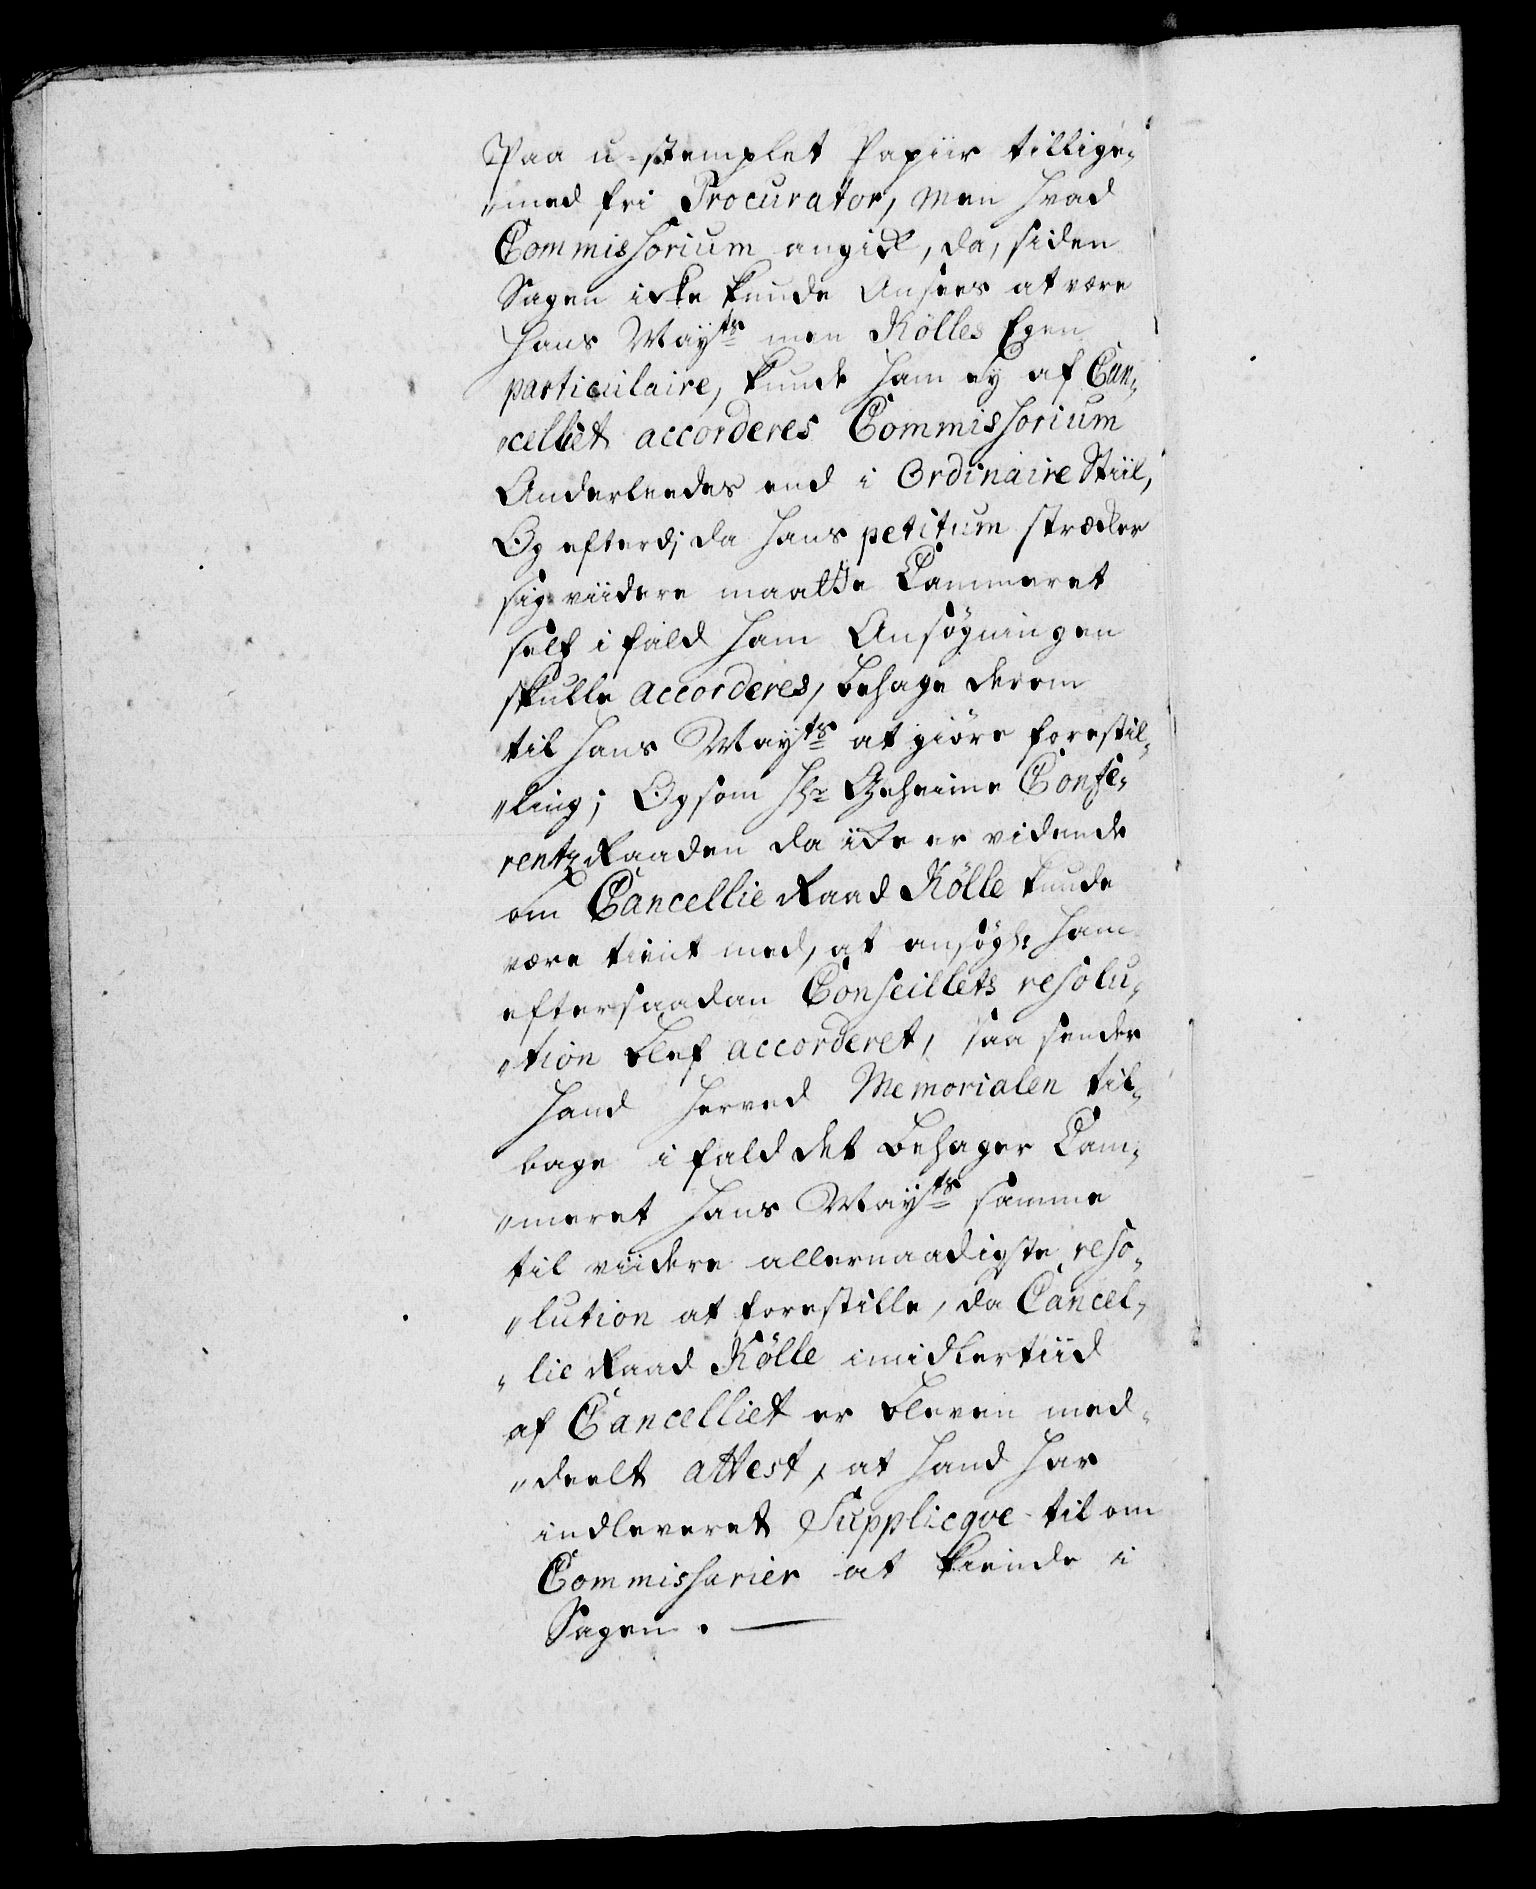 Paa u-stemplet Papiir tillige,,
,,med fri Procurator, Men hvad
Commissorium angick, da, siden
Sagen icke kunde Ansees at være
hans Mayts men Kølles Egen
particulaire, kunde ham ey af Can,,
,,celliet accorderes Commissorium
Anderleedes end i Ordinaire Stiil,
Og efterdj da hans petitum strecker
sig viidere maatte Cammeret
self ifald ham Ansøgningen
skulle accorderes, behage derom
til Hans Mayts at giøre forestil,,
,,ling; Og som Hr Geheime Confe,,
rentz Raaden da icke er vidende
om Cancellie Raad Kølle kunde
være tient med, at ansøgh: ham
efter saadan Conseillets resolu,,
,,tion blef accorderet, saa sender
Hand herved Memorialen til,,
bage i fald det behager Cam,,
,,meret Hans Mayts samme
til viidere allernaadigste reso,,
,,lution at forestille, da Cancel,,
,,lie Raad Kølle imidlertiid
af Cancelliet er bleven med,,
,,deelt attest, at hand har
indleveret Supplicqve til om
Commissarier at kiende i
Sagen.